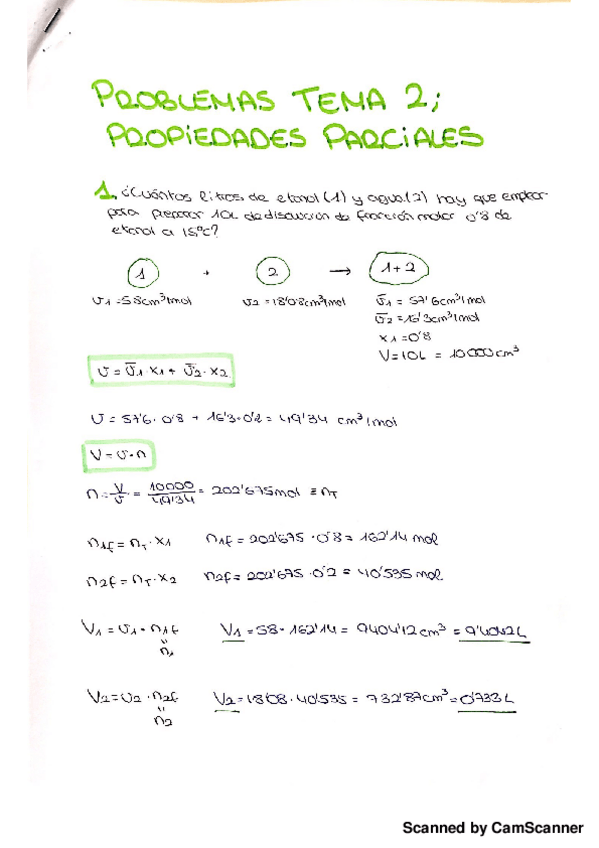 PROBLEMAS TEMA 2;
PROPIEDADES PARCIALES
1. ¿Cuántos litros de etanol (1) y agua (2) hay que emplear
para preparar 10L de disolución de fracción molar 0'8 de
etanol a 15ºC?
1 + 2 → 1+2
v1 = 58cm³/mol v2 = 18'08cm³/mol v̄1 = 57'6cm³/mol
v̄2 = 16'3cm³/mol
x1 = 0'8
V = 10L = 10000cm³
v = v̄1 · x1 + v̄2 · x2
v = 57'6 · 0'8 + 16'3 · 0'2 = 49'34 cm³/mol
V = v · n
n = V/v = 10000/49'34 = 202'675mol ≡ nT
n1f = nT · x1 n1f = 202'675 · 0'8 = 162'14 mol
n2f = nT · x2 n2f = 202'675 · 0'2 = 40'535 mol
V1 = v1 · n1f V1 = 58 · 162'14 = 9404'12cm³ = 9'4042L
"
n1
V2 = v2 · n2f V2 = 18'08 · 40'535 = 732'87cm³ = 0'733L
"
n2
Scanned by CamScanner